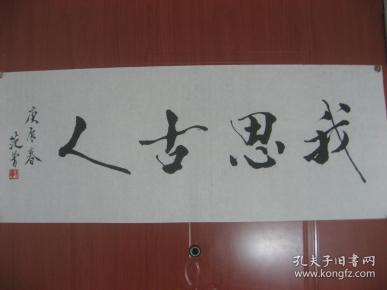 我思古人
庚辰春
范曾
孔夫子旧书网
www.kongfz.com